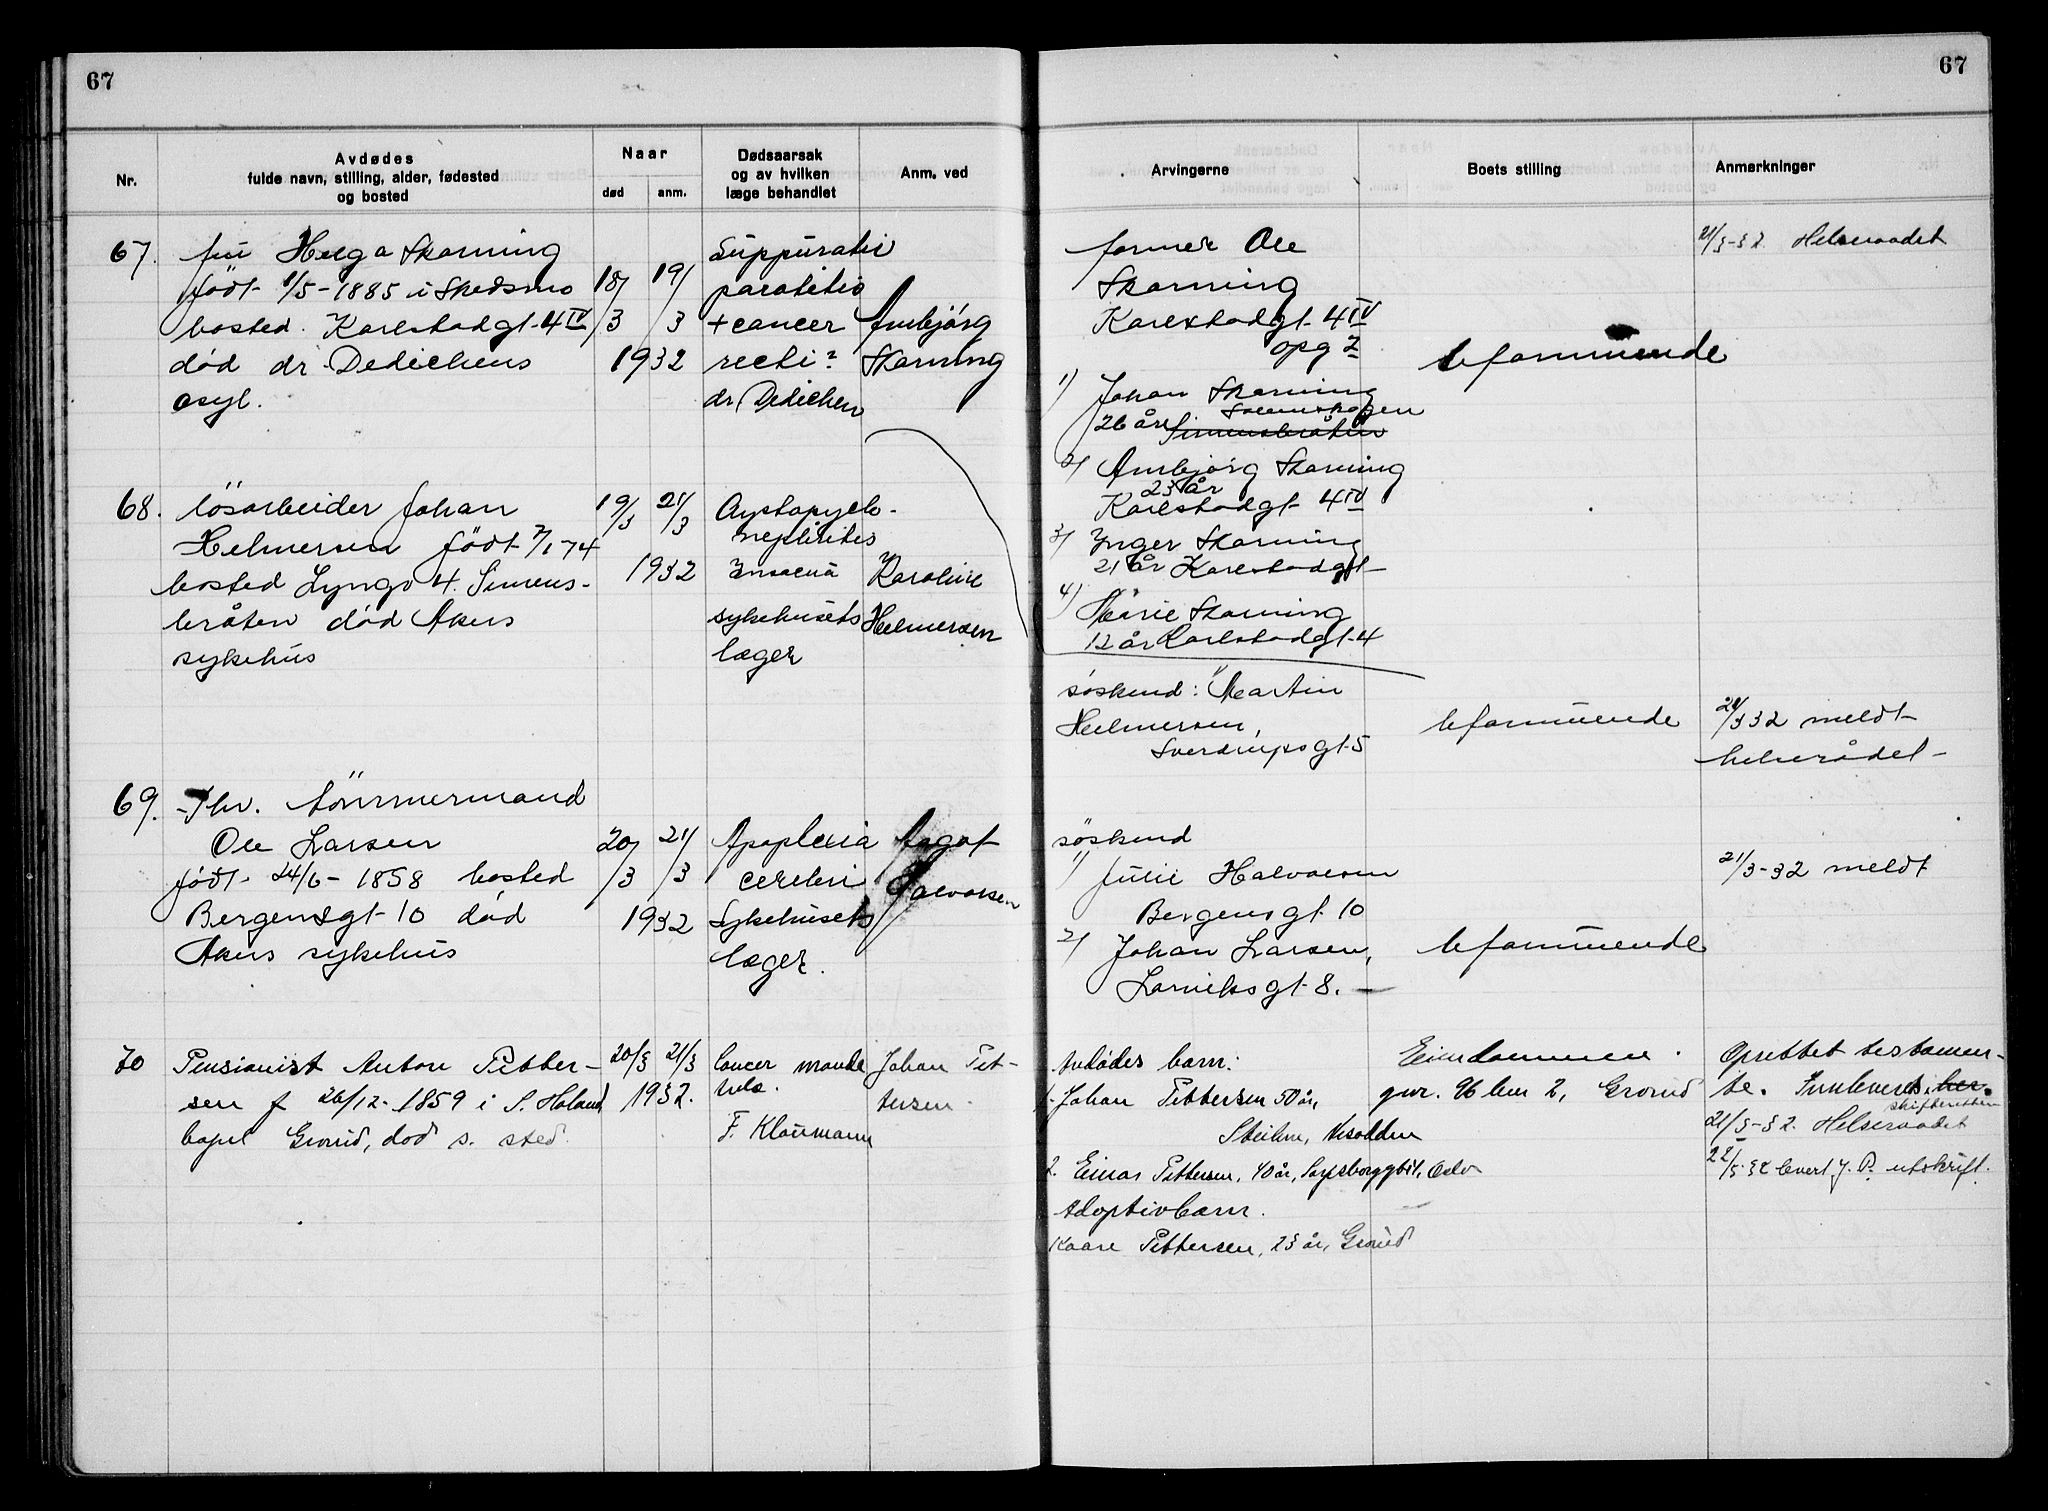 67
67
Nr.
Avdødes
fulde navn, stilling, alder, fødested
og bosted
Naar
død
anm.
Dødsaarsak
og av hvilken
læge behandlet
Anm. ved
Arvingerne
Boets stilling
Anmerkninger
67.
fru Helga Skarning
født 1/5-1885 i Skedsmo
bosted. Karlstadgt. 4 IV
død dr. Dedichens
asyl.
18/3 19/3
1932
Suppurativ
parotitis
+ cancer
recti?
dr. Dedichen
Arnbjørg
Skarning
former Ole
Skarning
Karlstadgt. 4 IV
opg 2
1) Johan Skarning
26 år
2) Arnbjørg Skarning
23 år
Karlstadgt 4 IV
3) Inger Skarning
21 år Karlstadgt
4) Marie Skarning
12 år Karlstadgt. 4
uformuende
21/3-32 Helseraadet
68.
løsarbeider Johan
Helmersen født 7/1-74
bosted Lyngv 4. Simens-
bråten død Akers
sykehus
19/3 21/3
1932
Cystopyelo-
nephritis
sykehusets
læger
Karoline
Helmersen
søskend: 1) Martin
Helmersen,
Sverdrupsgt. 5
uformuende
21/3 32 meldt
helserådet
69.
Fhv. tømmermand
Ole Larsen
født 24/6-1858 bosted
Bergensgt 10 død
Akers sykehus
20/3 21/3
1932
Apoplexia
cerebri
Sykehusets
læger.
Aagot
Halvorsen
søskend
1) Julie Halvorsen
Bergensgt. 10
2) Johan Larsen,
Larviksgt 8.
uformuende
21/3-32 meldt
70
Pensionist Anton Petter-
sen f 26/12-1859 i S. Høland
bopel Grorud, død s. sted.
20/3 21/3
1932.
Cancer mandi
bula.
F. Klaumann
Johan Pet-
tersen.
Avdødes barn:
1. Johan Pettersen 50 år,
Steilene, Nesodden
2. Einar Pettersen, 40 år, Sarpsborggt 1, Oslo
Adoptivbarn.
Kaare Pettersen, 23 år, Grorud
Eiendommen
gnr. 96 bnr 2, Grorud
Oprettet testamen-
te. Innleveret her.
skifteretten
21/3-32. Helseraadet
22/5-32 levert J. P. utskrift.